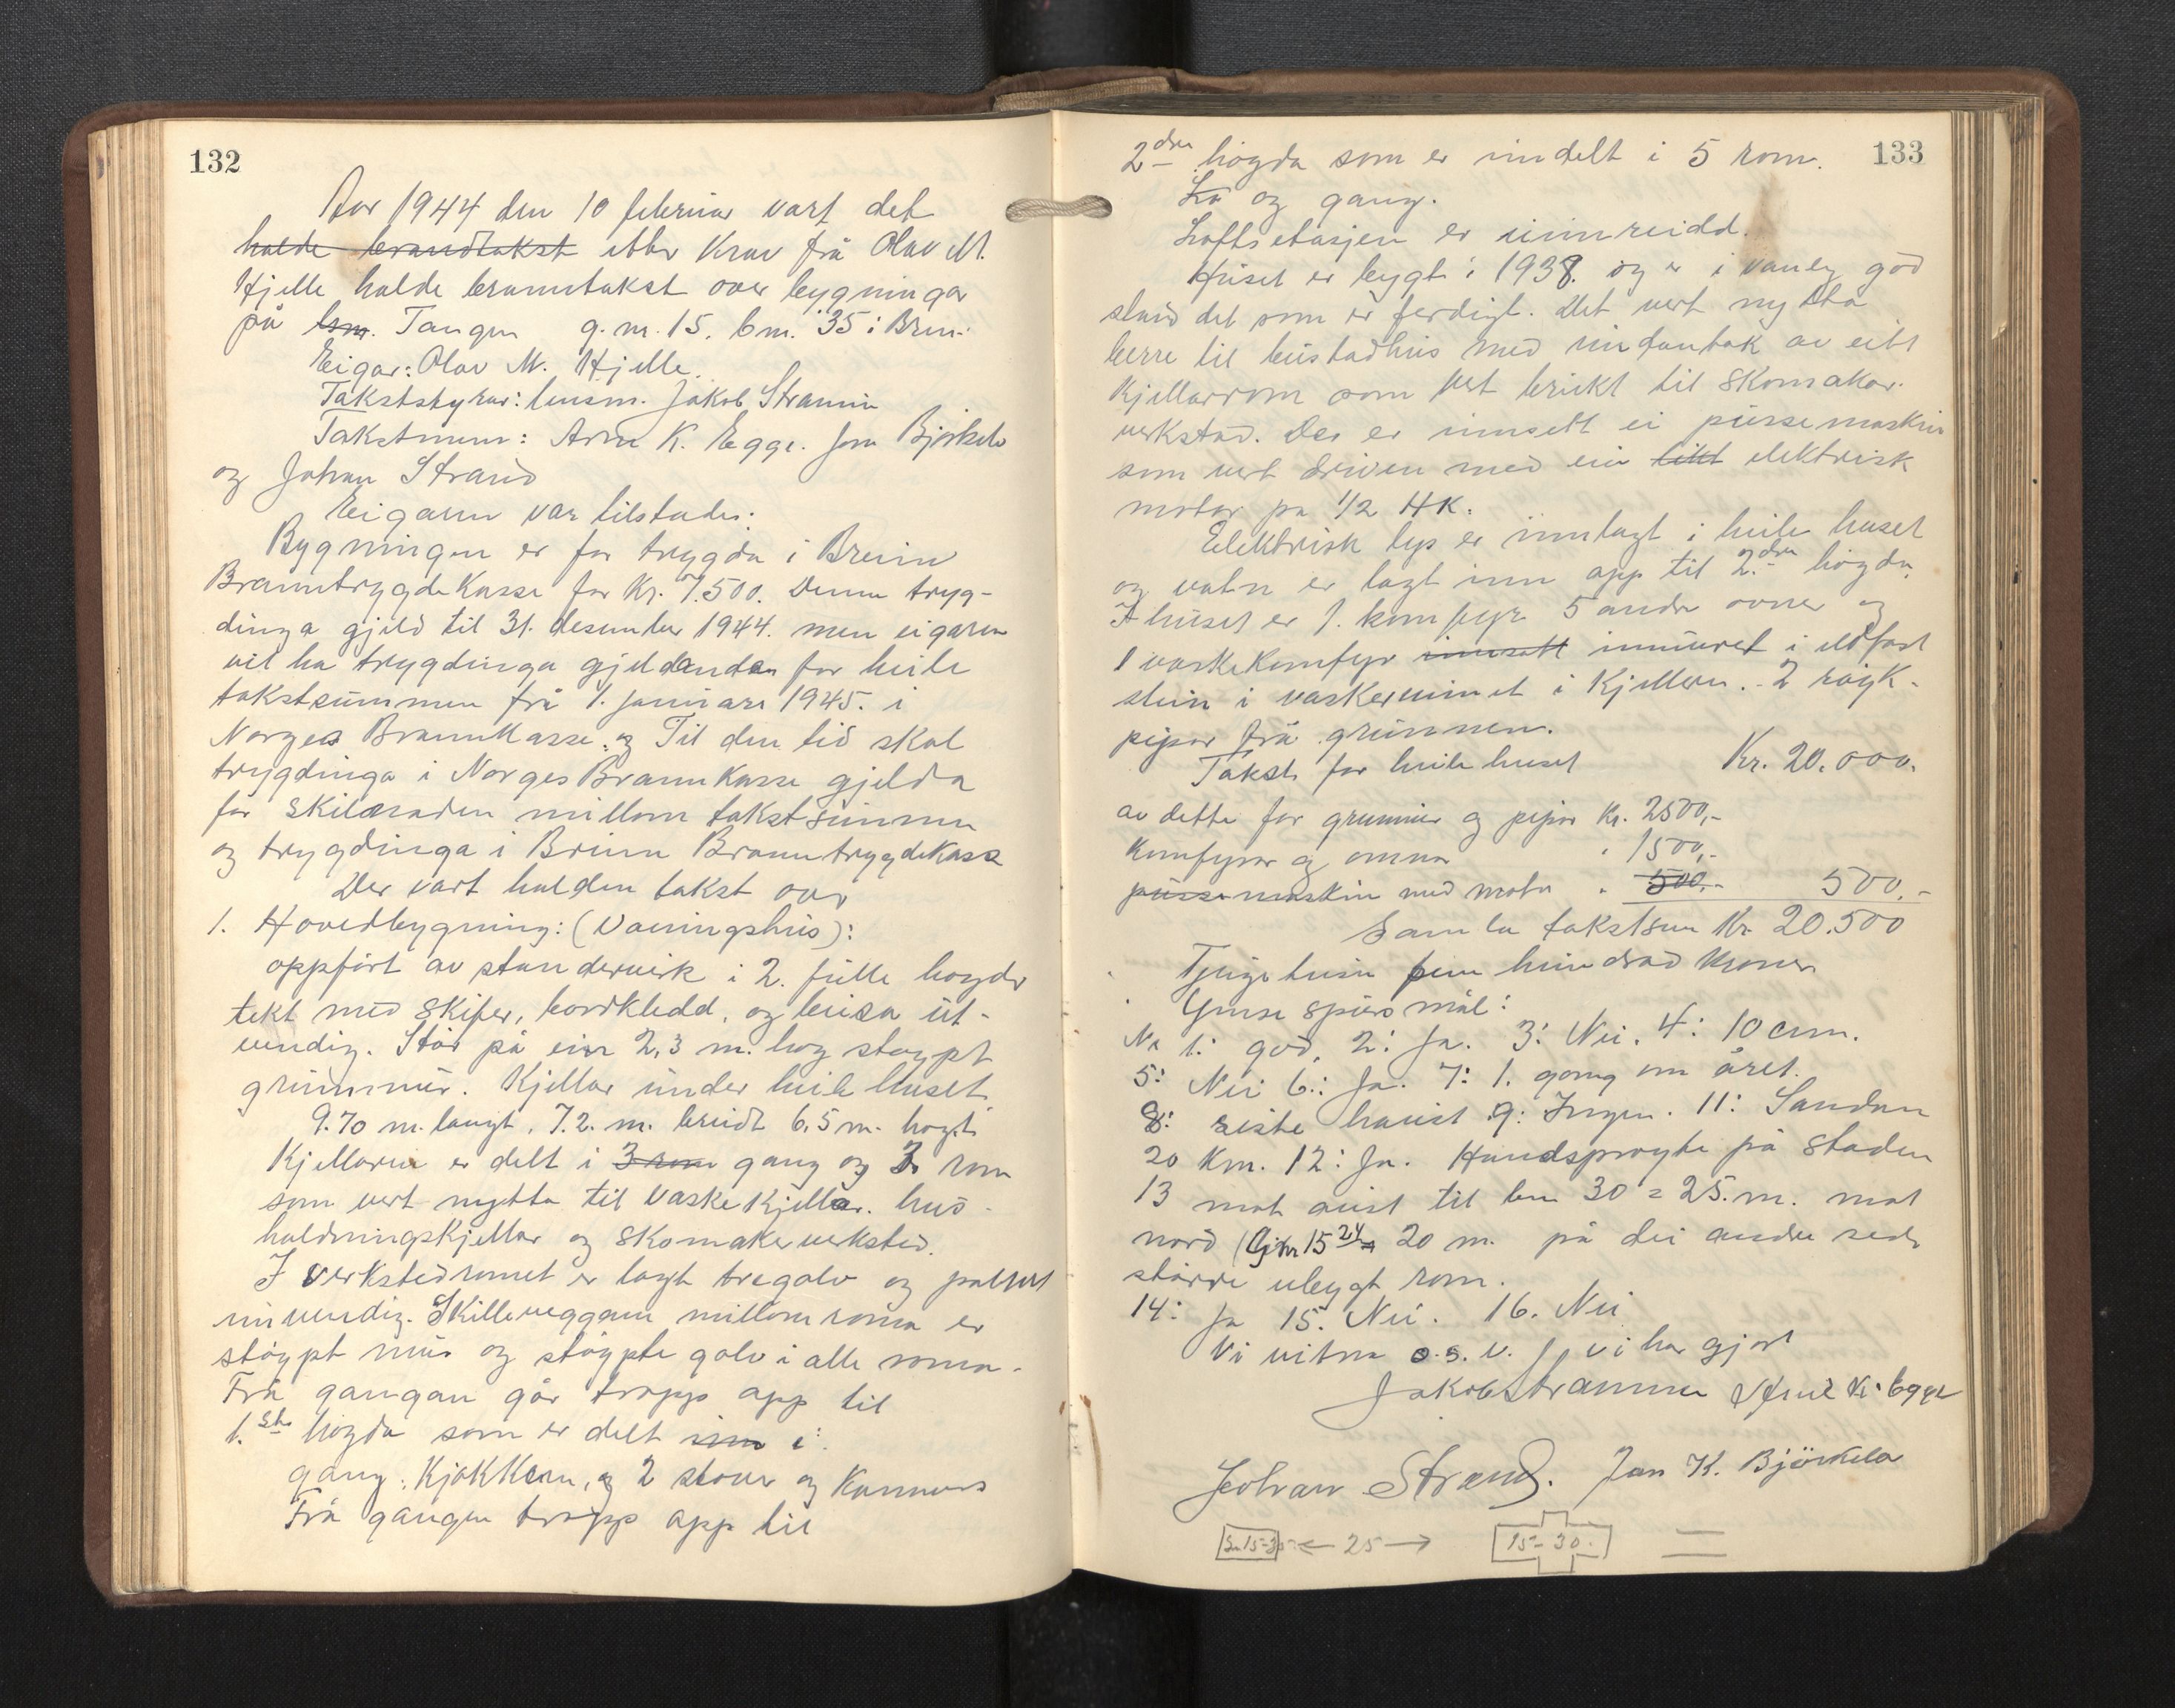 132
Aar 1944 den 10 februar vart det
halde brandtakst etter Krav frå Olav M.
Hjelle halde branntakst over bygningar
på bsm. Tangen g.nr. 15. b.nr. 35 i Breim.
Eigar: Olav M. Hjelle.
Takststyrar: lensm. Jakob Stramm
Takstmenn: Arne K. Egge. Jon Bjørkelo
og Johan Strand
Eigaren var tilstades.
Bygningen er før trygda i Breim
BranntrygdeKasse for Kr. 7.500. Denne tryg-
dinga gjeld til 31. desember 1944. men eigaren
vil ha trygdinga gjeldande for heile
takstsummen frå 1. januar 1945. i
Norges BrannKasse. og Til den tid skal
trygdinga i Norges BrannKasse gjelda
for skilnaden millom takstsummen
og trygdinga i Breim BranntrygdeKasse
Der vart halden takst over
1. Hovedbygning: (Vaaningshus):
oppført av standerverk i 2. fulle høgder
tekt med skifer, bordkledd, og beisa ut-
vendig. Står på ein 2,3 m. høg støypt
grunnmur. Kjellar under heile huset
9.70 m. langt, 7.2. m. breidt 6,5 m. høgt
Kjellaren er delt i 3 rom gang og 3 rom
som vert nytta til vaskekjellar. hus-
haldningskjellar og skomakerverksted.
I verkstedromet er lagt tregolv og
innvendig. Skilleveggane millom roma er
støypt mur og støypte golv i alle roma.
Frå gangen går trapp opp til
1.ste høgda som er delt inn i:
gang, Kjøkken, og 2 stover og Kammers
Frå gangen trapp opp til
133
2dre høgda som er inndelt i 5 rom.
og gang.
Loftsetasjen er uinnreidd.
Huset er bygt i 1938. og er i vanleg god
stand det som er ferdigt. Det vert nytta
berre til bustadhus med undantak av eitt
Kjellarrom som vert brukt til skomakar-
verkstad. Der er innsett ei pussemaskin
som vert driven med ein likt elektrisk
motor på 1/2 HK.
Elektrisk lys er innlagt i heile huset
og vatn er lagt inn opp til 2.dre høgda.
I huset er 1. komfyr 5 andre ovner og
1 vaskekomfyr innsatt innmuret i eldfast
stein i vaskerommet i Kjelleren. 2 røyk-
pipor frå grunnen.
Takst for heile huset Kr. 20.000.
av dette for grunnmur og pipor Kr. 2500,-
Komfyrar og omnar " 1500,-
pussemaskin med motor " 500,- 500,-
Samla takstsum Kr 20.500
Tjuge tusen fem hundrad Kroner
Ymse spursmål:
Nr 1: god, 2: Ja. 3: Nei. 4: 10 cm.
5: Nei 6.: Ja. 7: 1. gong om året.
8: siste haust 9: Ingen. 11: Sandane
20 Km. 12: Ja. Handsprøyte på staden
13 mot aust til bnr 30 = 25. m. mot
nord (Gnr 15 24 20 m. på dei andre sider
større ubygt rom.
14: Ja 15. Nei. 16. Nei
Vi vitna o.s.v. vi har gjort
Jakob Stramm Arne K. Egge
Johan Strand. Jon K. Björkelo
15-35 ← 25 → 15-30.